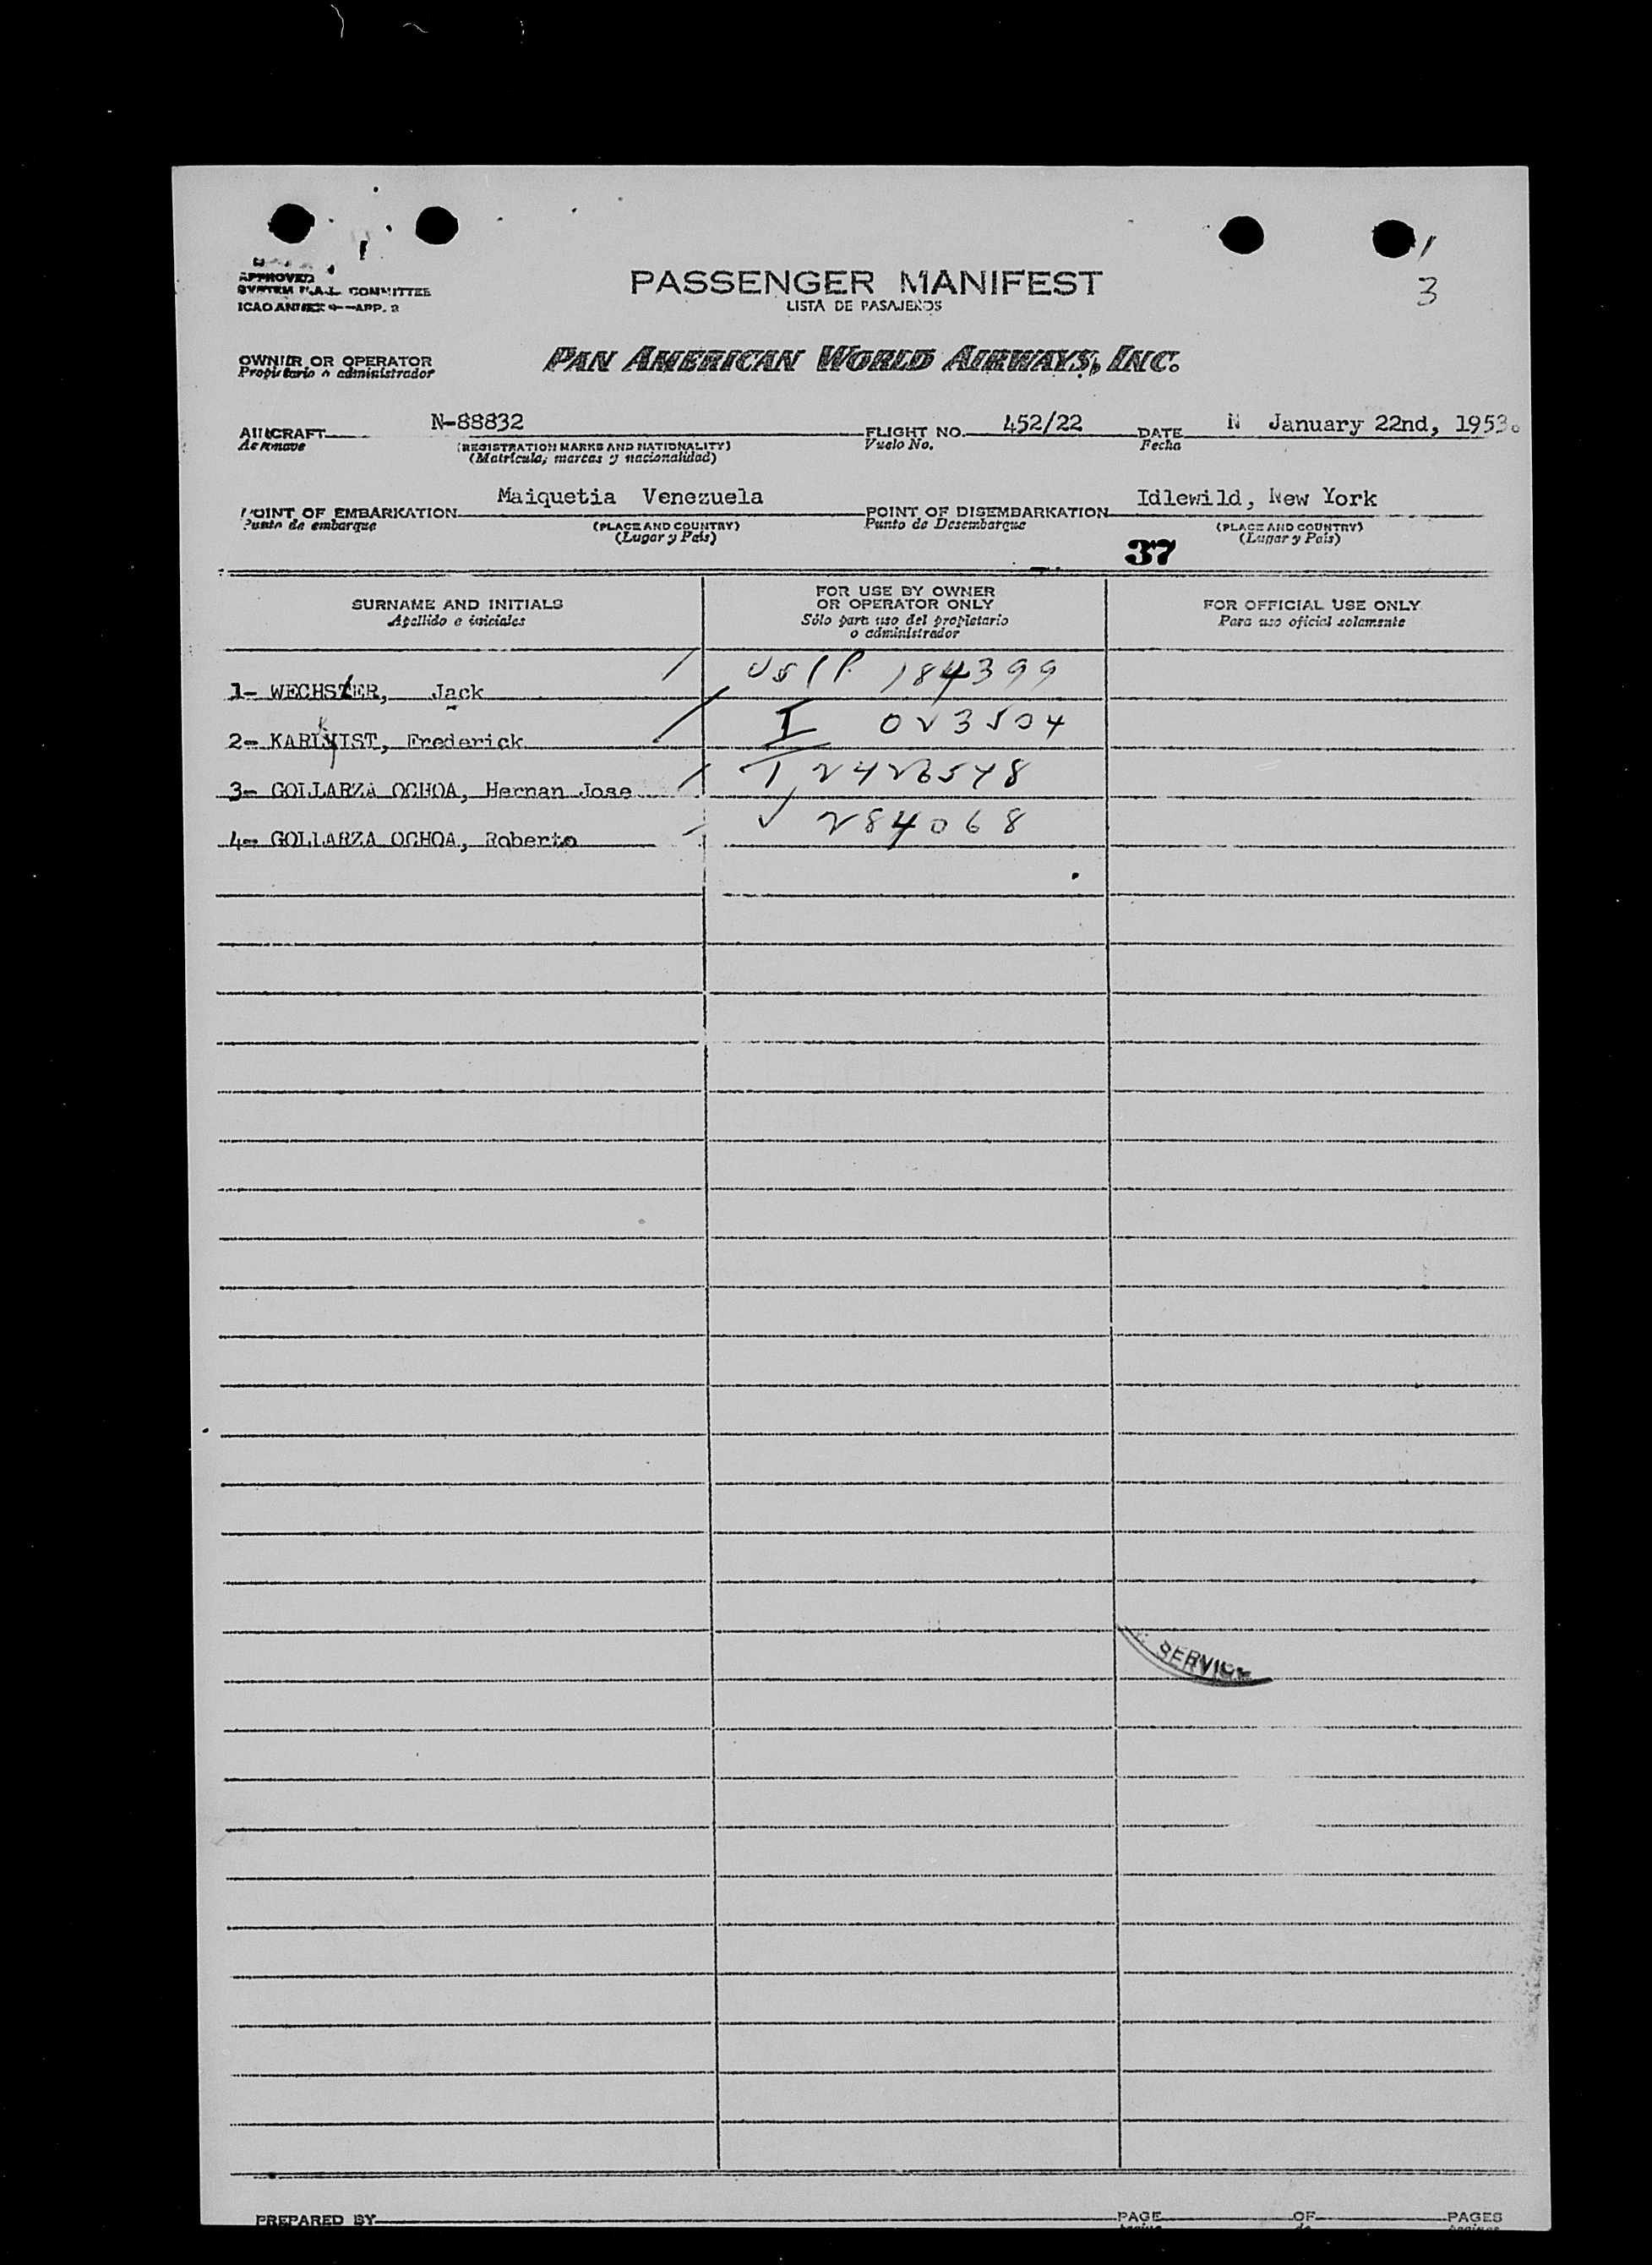 APPROVED
COMMITTEE
ICAO ANNEX 9—APP. 2
PASSENGER MANIFEST
LISTA DE PASAJEROS
3
OWNER OR OPERATOR
Propietario o administrador
PAN AMERICAN WORLD AIRWAYS, INC.
AIRCRAFT N-88832 FLIGHT NO. 452/22 DATE N January 22nd, 1953.
Aeronave (REGISTRATION MARKS AND NATIONALITY) Vuelo No. Fecha
(Matrícula, marcas y nacionalidad)
POINT OF EMBARKATION Maiquetia Venezuela POINT OF DISEMBARKATION Idlewild, New York
Punto de embarque (PLACE AND COUNTRY) Punto de Desembarque (PLACE AND COUNTRY)
(Lugar y País) (Lugar y País)
37
SURNAME AND INITIALS
Apellido e iniciales
FOR USE BY OWNER
OR OPERATOR ONLY
Sólo para uso del propietario
o administrador
FOR OFFICIAL USE ONLY
Para uso oficial solamente
1- WECHSLER, Jack 184399
2- Frederick I 023504
3- GOLLARZA OCHOA, Hernan Jose 2426548
4- GOLLARZA OCHOA, Roberto 284068
SERVICE
PREPARED BY PAGE OF PAGES